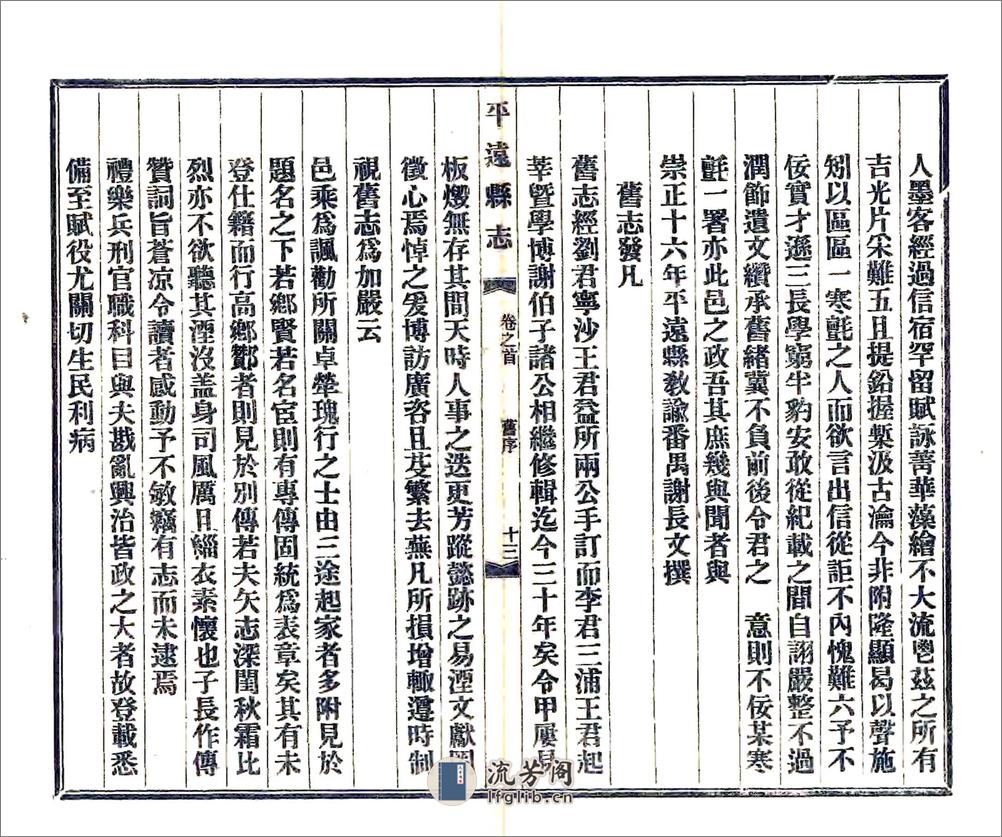 人墨客經過信宿罕留賦詠菁華藻繪不大流鬯茲之所有
吉光片宋難五且提鉛握槧汲古瀹今非附隆顯曷以聲施
矧以區區一寒氈之人而欲言出信從詎不內愧難六予不
佞實才遜三長學窮半豹安敢從紀載之間自詡嚴整不過
潤節遺文纘承舊緒冀不負前後令君之 意則不佞某寒
氈一署亦此邑之政吾其庶幾與聞者與
崇正十六年平遠縣教諭番禺謝長文撰
舊志發凡
舊志經劉君寧沙王君益所兩公手訂而李君三浦王君起
莘暨學博謝伯子諸公相繼修輯迄今三十年矣令甲屢易
板燬無存其間天時人事之迭更芳蹤懿跡之易湮文獻罔
徵心焉悼之爰博訪廣咨且芟繁去蕪凡所損增輙遵時制
視舊志爲加嚴云
平遠縣志
卷之首
舊序
十三
邑乘爲諷勸所關卓犖瑰行之士由三途起家者多附見於
題名之下若鄉賢若名宦則有專傳固統爲表章矣其有未
登仕籍而行高鄉鄹者則見於別傳若夫矢志深閨秋霜比
烈亦不欲聽其湮沒盖身司風厲且緇衣素懷也子長作傳
贊詞旨蒼凉令讀者感動予不敏竊有志而未逮焉
禮樂兵刑官職科目與夫戡亂興治皆政之大者故登載悉
備至賦役尤關切生民利病
流芳閣
lfglib.cn